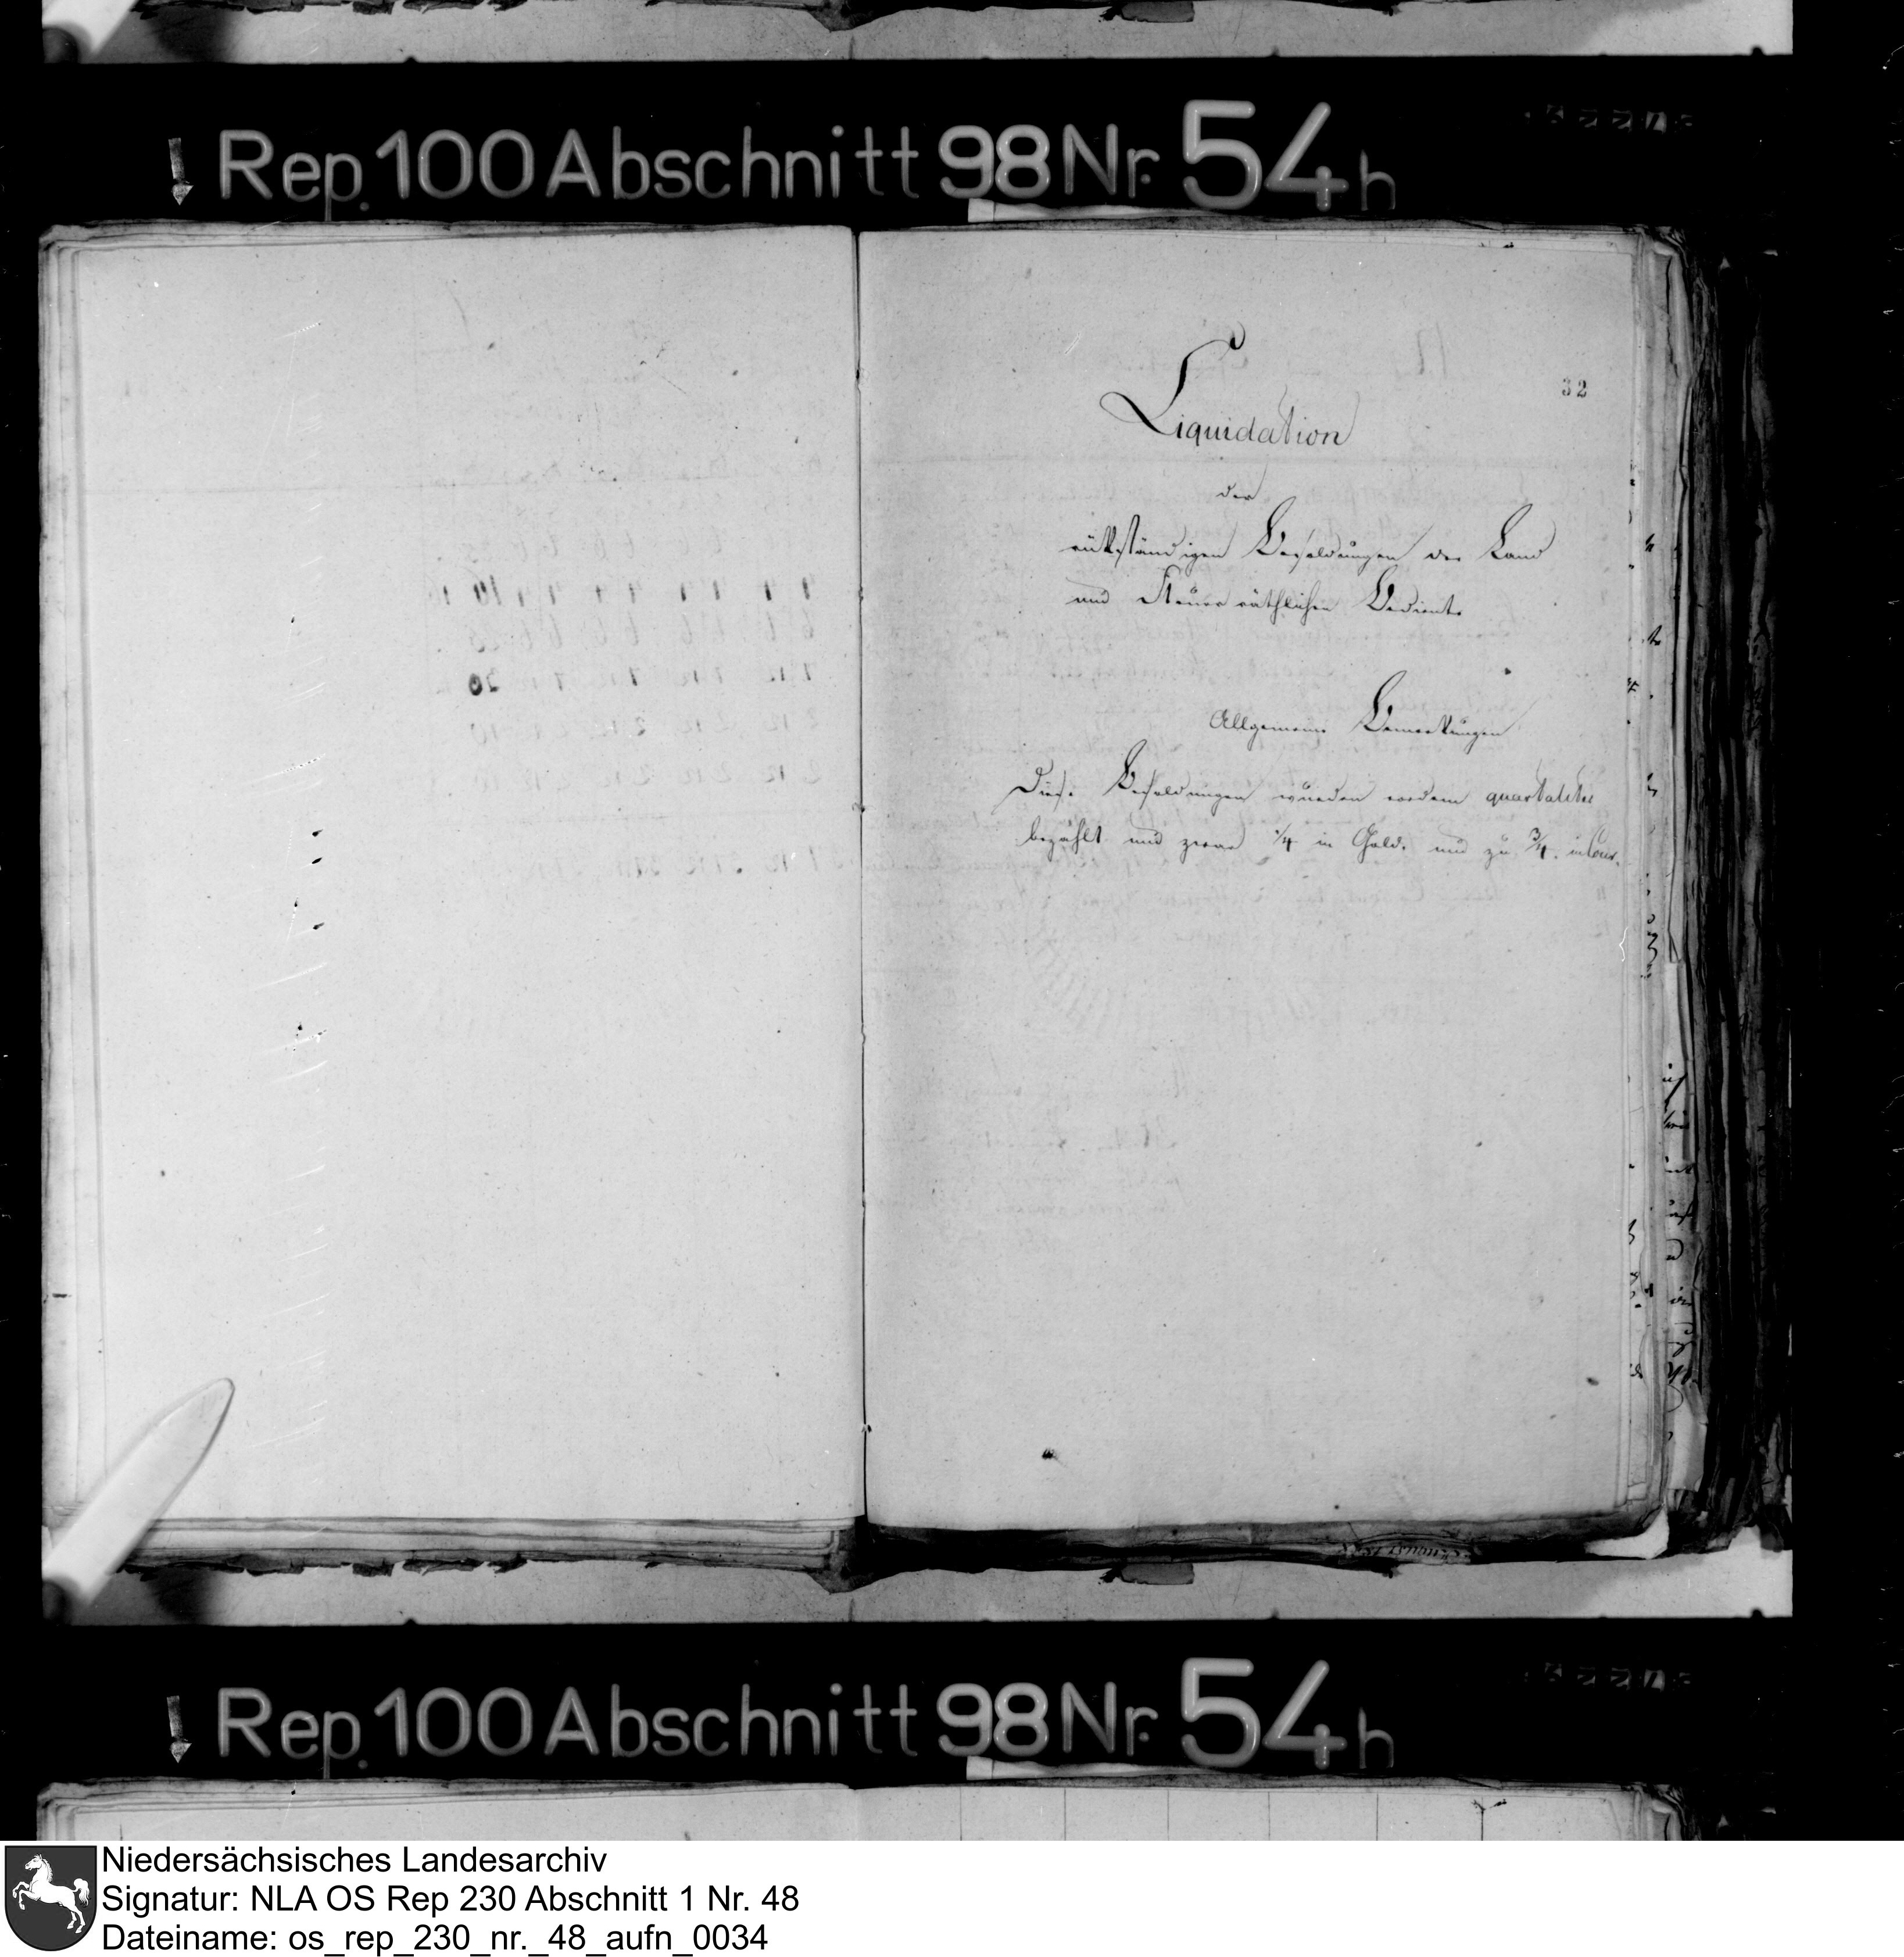 Rep. 100 Abschnitt 98 Nr. 54 h
32
Liquidation
der
rükständigen Besoldungen der Land
und Steuer räthlichen Bediente
Allgemeine Bemerkungen
Diese Besoldungen wurden vordem quartaliter
bezahlt und zwar 1/4 in Golde und zu 3/4. in Cour.
Rep. 100 Abschnitt 98 Nr. 54 h
Niedersächsisches Landesarchiv
Signatur: NLA OS Rep 230 Abschnitt 1 Nr. 48
Dateiname: os_rep_230_nr._48_aufn_0034